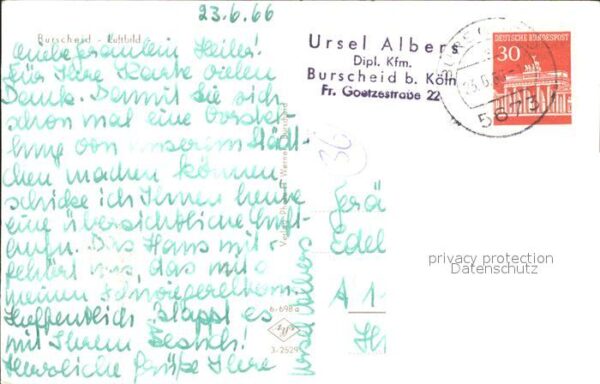 23.6.66
Burscheid - Luftbild
Liebe Fräulein Heiler!
Für Ihre Karte vielen
Dank. Damit Sie sich
schon mal eine Vorstel-
lung von unserem Städt-
chen machen können
schicke ich Ihnen heute
eine übersichtliche Luft-
aufn. Das Haus mit
gehört uns, das mit
meinen Schwiegereltern.
Hoffentlich klappt es
mit Ihrem Besuch!
Herzliche Grüße Ihre
Ursel Albers
Ursel Albers
Dipl. Kfm.
Burscheid b. Köln
Fr. Goetzestraße 22
DEUTSCHE BUNDESPOST
30
23.6.66
5673
36
Edel
A 1-
privacy protection
Datenschutz
6-698a
Agfa
3-2529